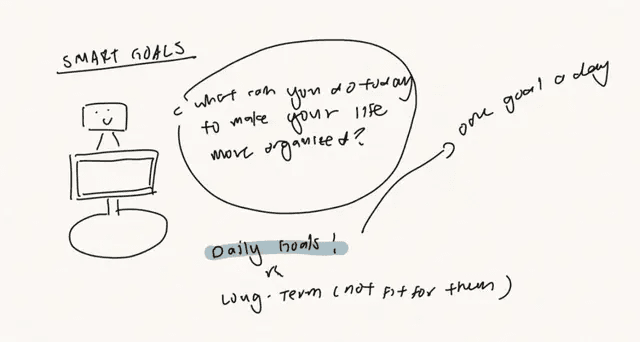 SMART GOALS
what can you do today
to make your life
more organized?
one goal a day
Daily Goals!
Long-Term (not fit for them)